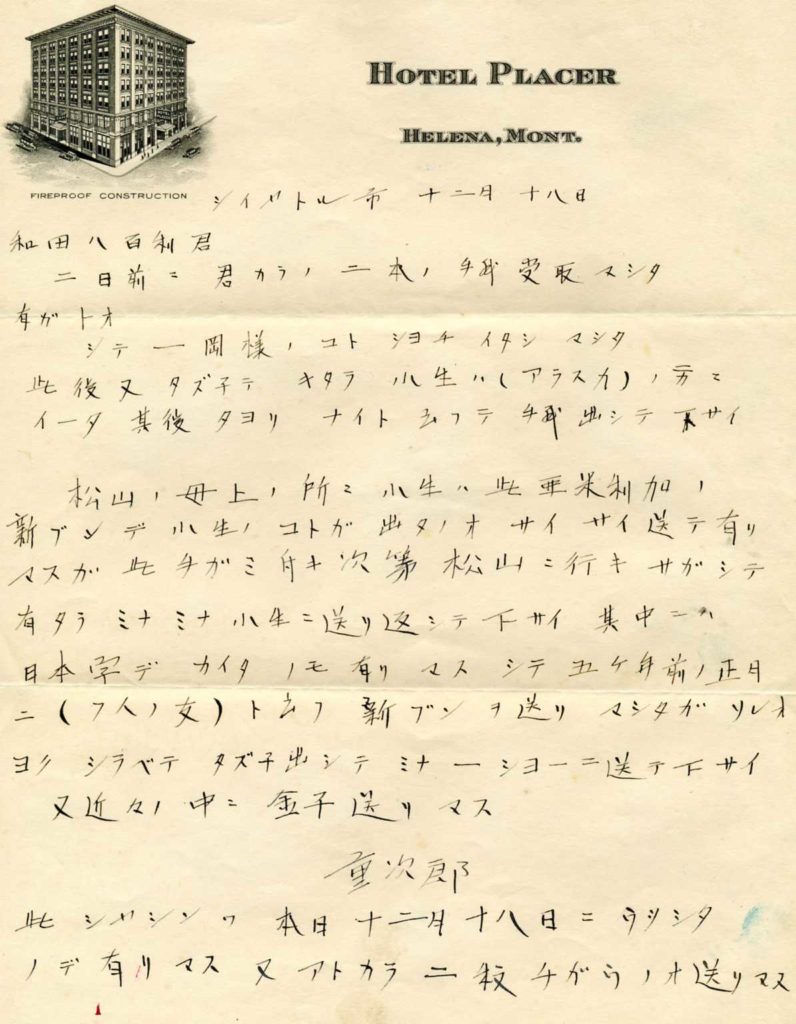 HOTEL PLACER
HELENA, MONT.
FIREPROOF CONSTRUCTION
シイヤトル市 十二月 十八日
和田八百利君
二日前ニ 君カラノ 二本ノ 手紙 受取 マシタ
有ガトオ
シテ 一岡様ノ コト ショチ イタシ マシタ
此後又 タズ子テ キタラ 小生ハ(アラスカ)ノ方ニ
イータ 其後 タヨリ ナイト 云フテ 手紙 出シテ 下サイ
松山ノ 母上ノ 所ニ 小生ハ 此 亜米利加ノ
新ブンデ 小生ノ コトガ 出タノオ サイサイ 送テ 有リ
マスガ 此 手ガミ 舟キ 次第 松山ニ 行キ サガシテ
有タラ ミナミナ 小生ニ 送リ返シテ 下サイ 其中ニハ
日本字デ カイタノモ 有リマス シテ 五ケ年前ノ 正月
ニ (7人ノ女) ト云フ 新ブンヲ 送リ マシタガ ソレオ
ヨク シラベテ タズ子出シテ ミナ 一ショーニ 送テ 下サイ
又近々ノ 中ニ 金子 送リマス
重次郎
此 シヤシンワ 本日 十二月 十八日ニ ウツシタ
ノデ 有リマス 又 アトカラ 二枚 チガウノオ 送リマス